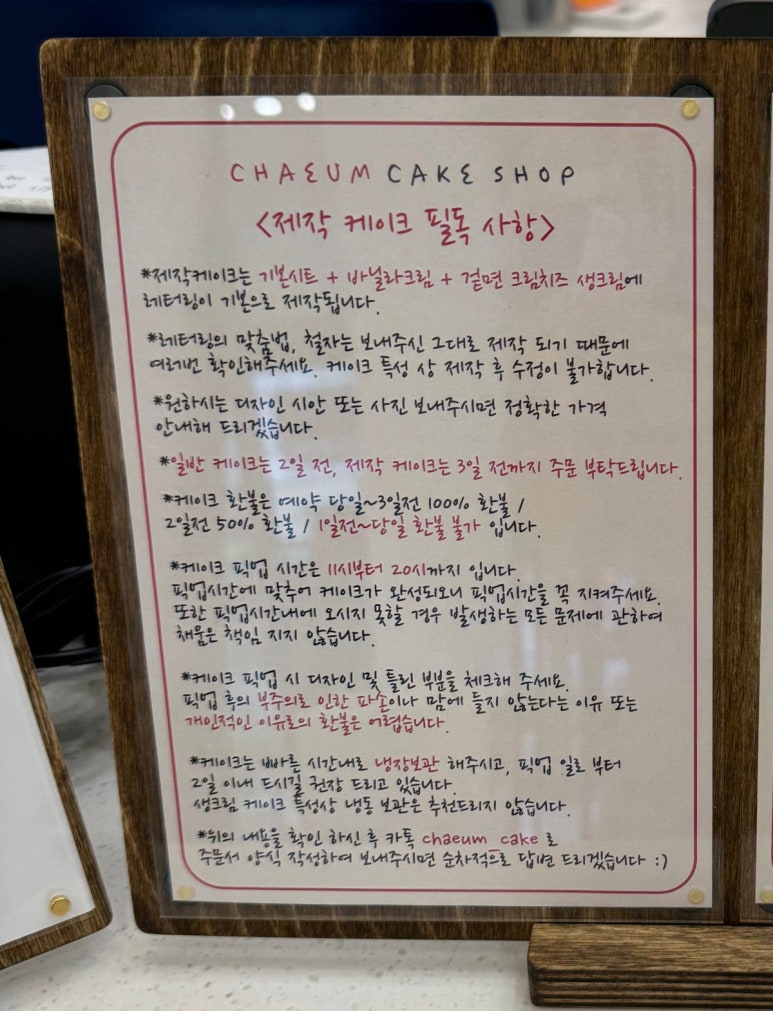 CHAEUM CAKE SHOP
<제작 케이크 필독 사항>
*제작케이크는 기본시트 + 바닐라크림 + 겉면 크림치즈 생크림에
레터링이 기본으로 제작됩니다.
*레터링의 맞춤법, 철자는 보내주신 그대로 제작 되기 때문에
여러번 확인해주세요. 케이크 특성 상 제작 후 수정이 불가합니다.
*원하시는 디자인 시안 또는 사진 보내주시면 정확한 가격
안내해 드리겠습니다.
*일반 케이크는 2일 전, 제작 케이크는 3일 전까지 주문 부탁드립니다.
*케이크 환불은 예약 당일~3일전 100% 환불 /
2일전 50% 환불 / 1일전~당일 환불 불가 입니다.
*케이크 픽업 시간은 11시부터 20시까지 입니다.
픽업시간에 맞추어 케이크가 완성되오니 픽업시간을 꼭 지켜주세요.
또한 픽업시간내에 오시지 못할 경우 발생하는 모든 문제에 관하여
채움은 책임 지지 않습니다.
*케이크 픽업 시 디자인 및 틀린 부분을 체크해 주세요.
픽업 후의 부주의로 인한 파손이나 맘에 들지 않는다는 이유 또는
개인적인 이유로의 환불은 어렵습니다.
*케이크는 빠른 시간내로 냉장보관 해주시고, 픽업 일로 부터
2일 이내 드시길 권장 드리고 있습니다.
생크림 케이크 특성상 냉동 보관은 추천드리지 않습니다.
*위의 내용을 확인 하신 후 카톡 chaeum_cake 로
주문서 양식 작성하여 보내주시면 순차적으로 답변 드리겠습니다 :)